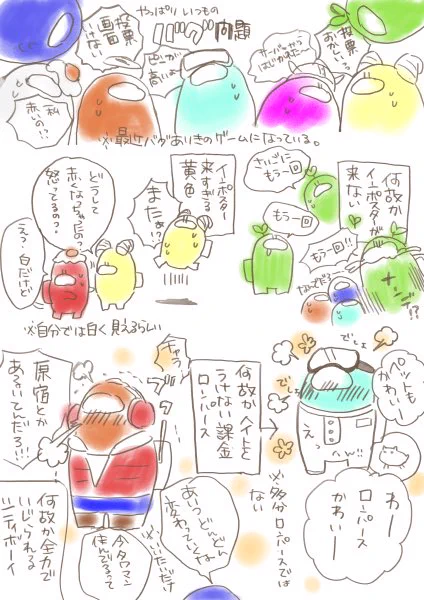 やっぱり いつもの
バグ問題
投票
画面
いけない
色が
高いよ
サーバーから
はじかれたー
投票
おかしいぃ
私
赤いの!?
※最早バグありきのゲームになっている。
何故か
インポスターが
来ない
さいごに
もう一回
もう一回
もう一回!!
なんでだろ
ナンデ!?
インポスター
来すぎる
黄色
またぁ!?
どうして
赤くなっちゃったの?
怒ってるの?
え?白だけど
※自分では白く見えるらしい
ペットも
かわいいー
でしょ
でしょ
えっへん!!
わー
ロンパース
かわいいー
何故かヘイトを
うけない課金
ロンパース
※多分ロンパースでは
ない
チャラ
原宿とか
あるいてんだろ!!!
何故か全力で
いじられる
シティボーイ
今タワマン
住んでるって
※いいたいだけ
あいつどんどん
変わっていくな